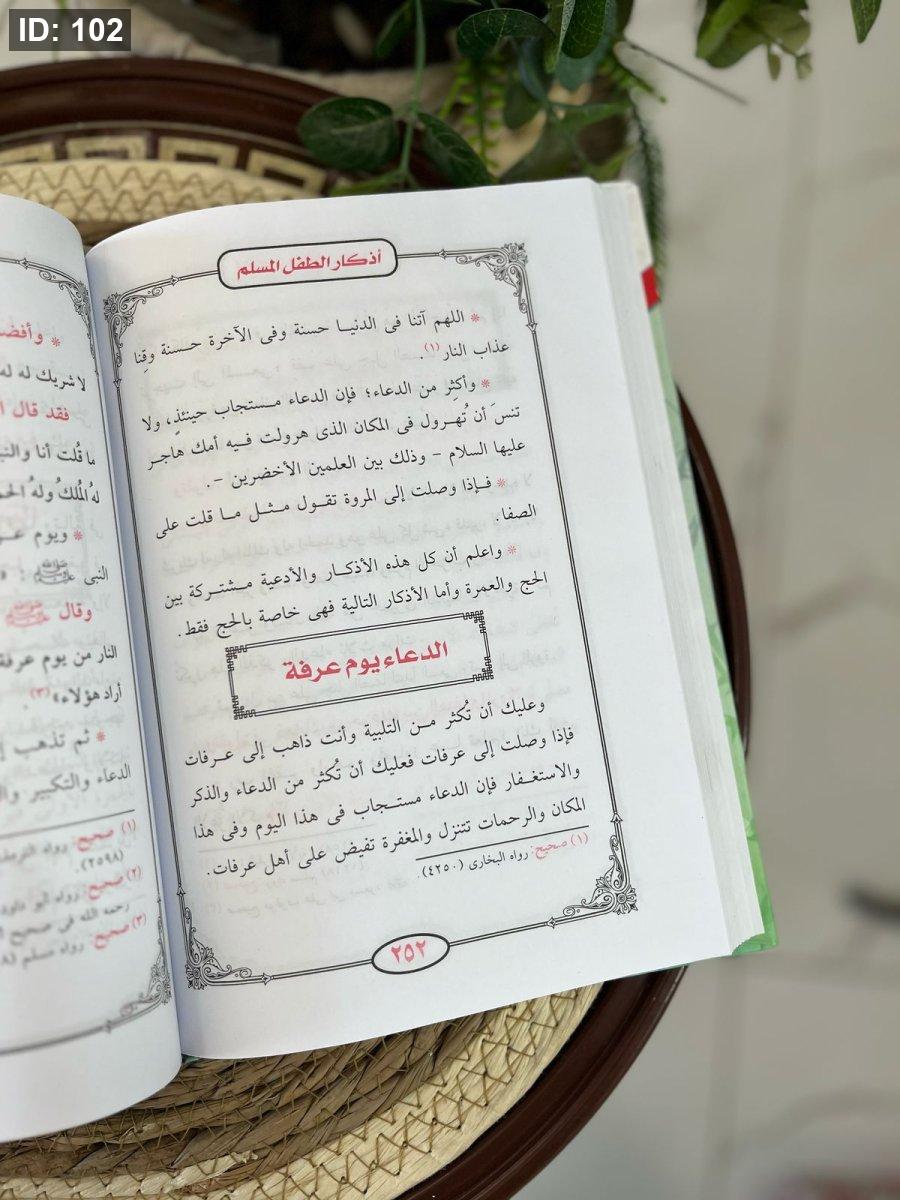 ID: 102
أذكار الطفل المسلم
* اللهم آتنا فى الدنيـا حسنة وفى الآخرة حـسنة وقِنا
عذاب النار(١).
* وأكثِر من الدعاء؛ فإن الدعاء مـستجاب حينئذٍ، ولا
تنسَ أن تُهـرول فى المكان الذى هرولت فـيه أمك هاجـر
عليها السلام - وذلك بين العلمين الأخضرين -.
* فـإذا وصلت إلى المروة تقـول مـثـل مـا قلت على
الصفا.
* واعلم أن كل هذه الأذكـار والأدعية مـشتـركة بين
الحج والعمرة وأما الأذكار التالية فهى خاصة بالحج فقط.
الدعاء يوم عرفة
وعليك أن تُكثر مـن التلبية وأنت ذاهب إلى عـرفات
فإذا وصلت إلى عرفات فعليك أن تُكثر من الدعاء والذكر
والاستغـفار فإن الدعاء مستـجاب فى هذا اليوم وفى هذا
المكان والرحمات تتنزل والمغفرة تفيض على أهل عرفات.
(١) صحيح: رواه البخارى (٤٢٥٠).
٢٥٢
لا شريك له
فقد قال
ما قُلت أنا
لهُ الُملكُ ولهُ
* ويوم
النبى ﷺ :
وقال ﷺ
النار من يوم عرفة
أراد هؤلاء» (٣).
* ثم تذهب
الدعاء والتكبير
(١) صحيح: رواه
(٢٥٩٨)
(٢) صحيح: رواه أبو داود
رحمه الله فى صحيح
(٣) صحيح: رواه مسلم